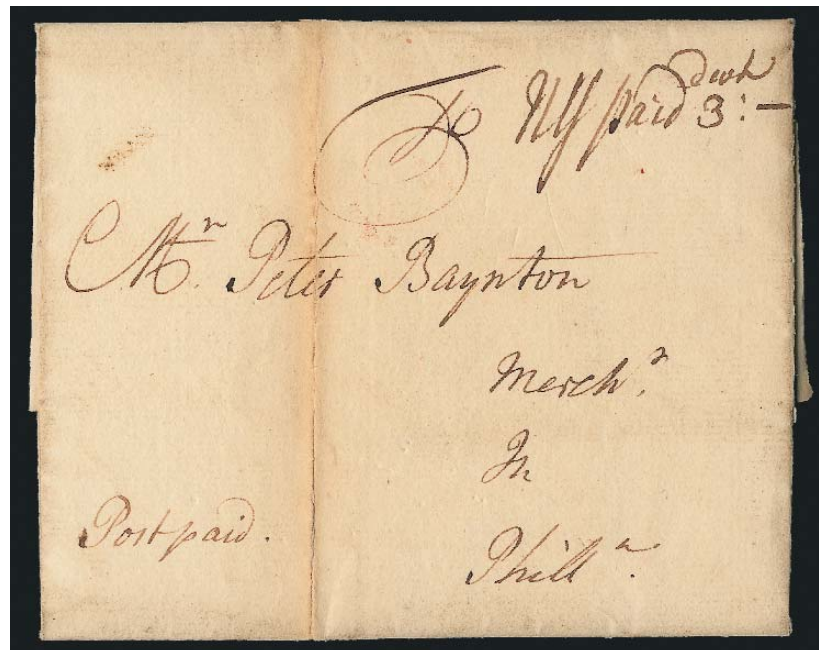 To
NY paid 3:—
dwt
Mr. Peter Baynton
Merchr.
In
Philla.
Post paid.